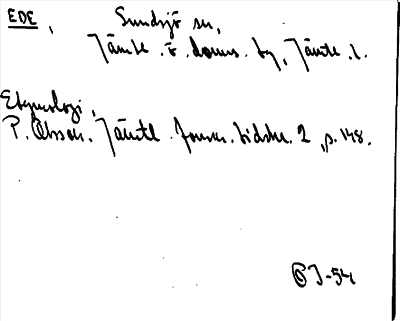 EDE, Sundsjö sn,
Jämtl. ö. doms. by, Jämtl. l.
Etymologi,
P. Olsson. Jämtl. fornskr. tidskr. 2, p. 148.
OJ-54